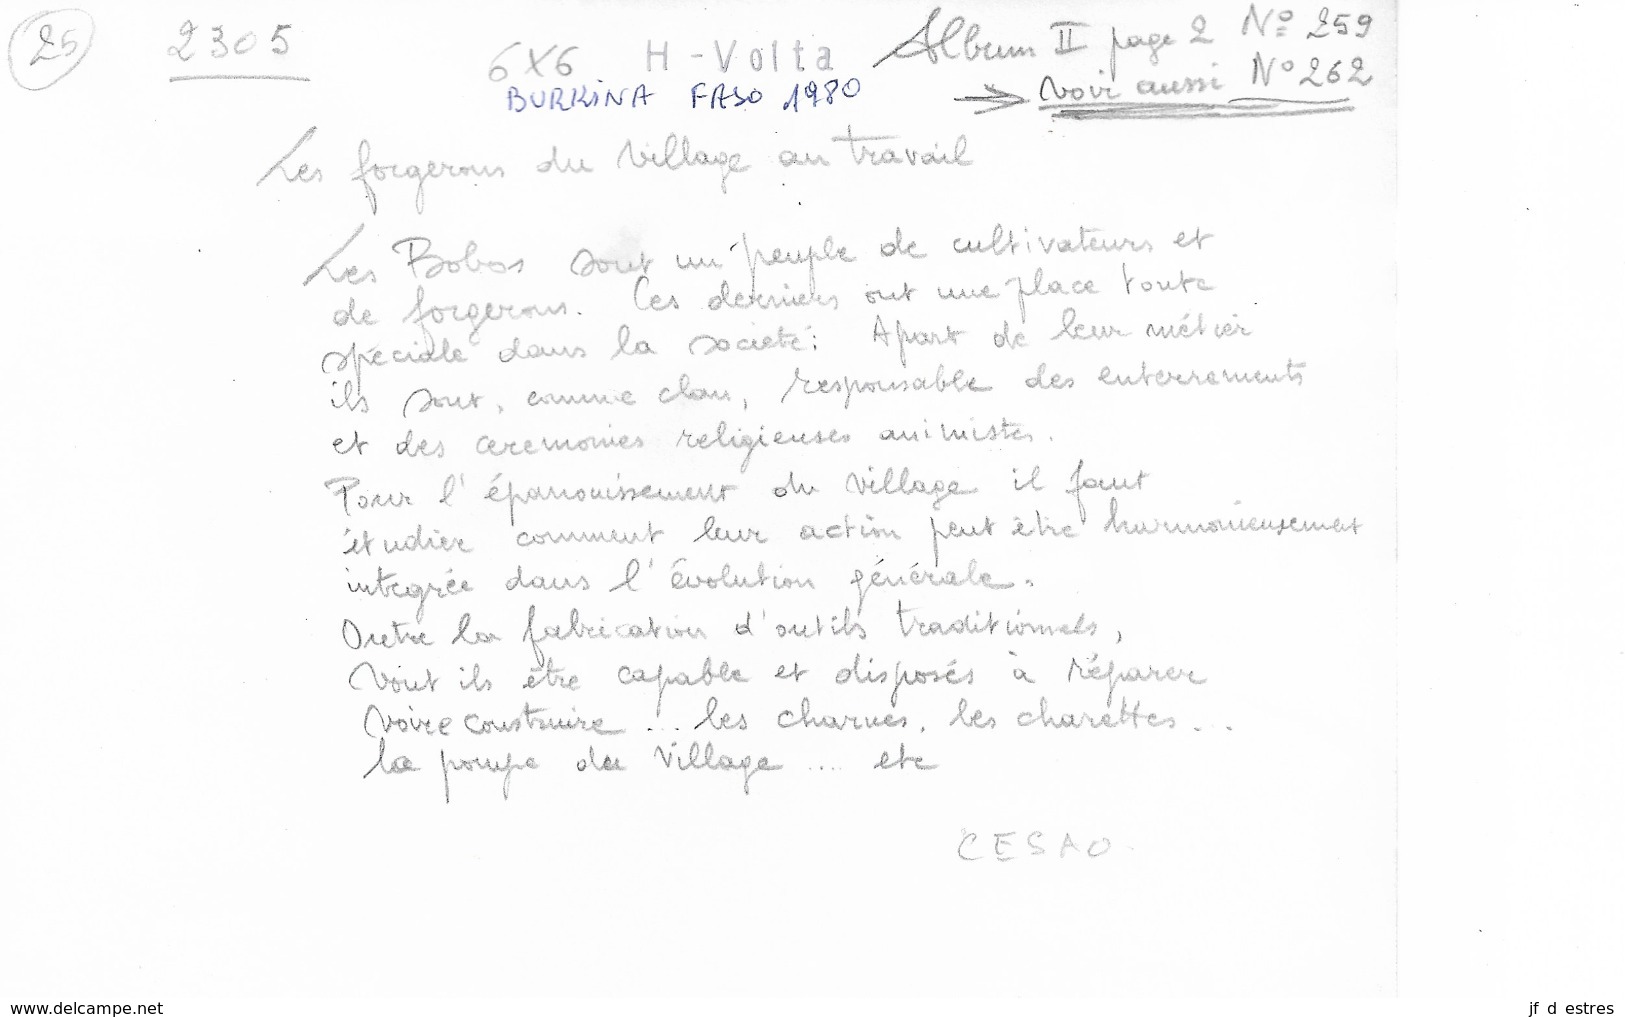 25
2305
6x6 H-Volta
BURKINA FASO 1980
Album II page 2 N° 259
voir aussi N° 262
Les forgerons du village au travail
Les Bobos sont un peuple de cultivateurs et
de forgerons. Ces derniers ont une place toute
spéciale dans la société: Apart de leur métier
ils sont, comme clan, responsable des enterrements
et des ceremonies religieuses animistes.
Pour l'épanouissement du village il faut
étudier comment leur action peut être harmonieusement
integrée dans l'évolution générale.
Outre la fabrication d'outils traditionnels,
vont ils être capable et disposés à réparer
voire construire ... les charues, les charettes ...
la pompe du village .... etc
CESAO
www.delcampe.net
jf d estres